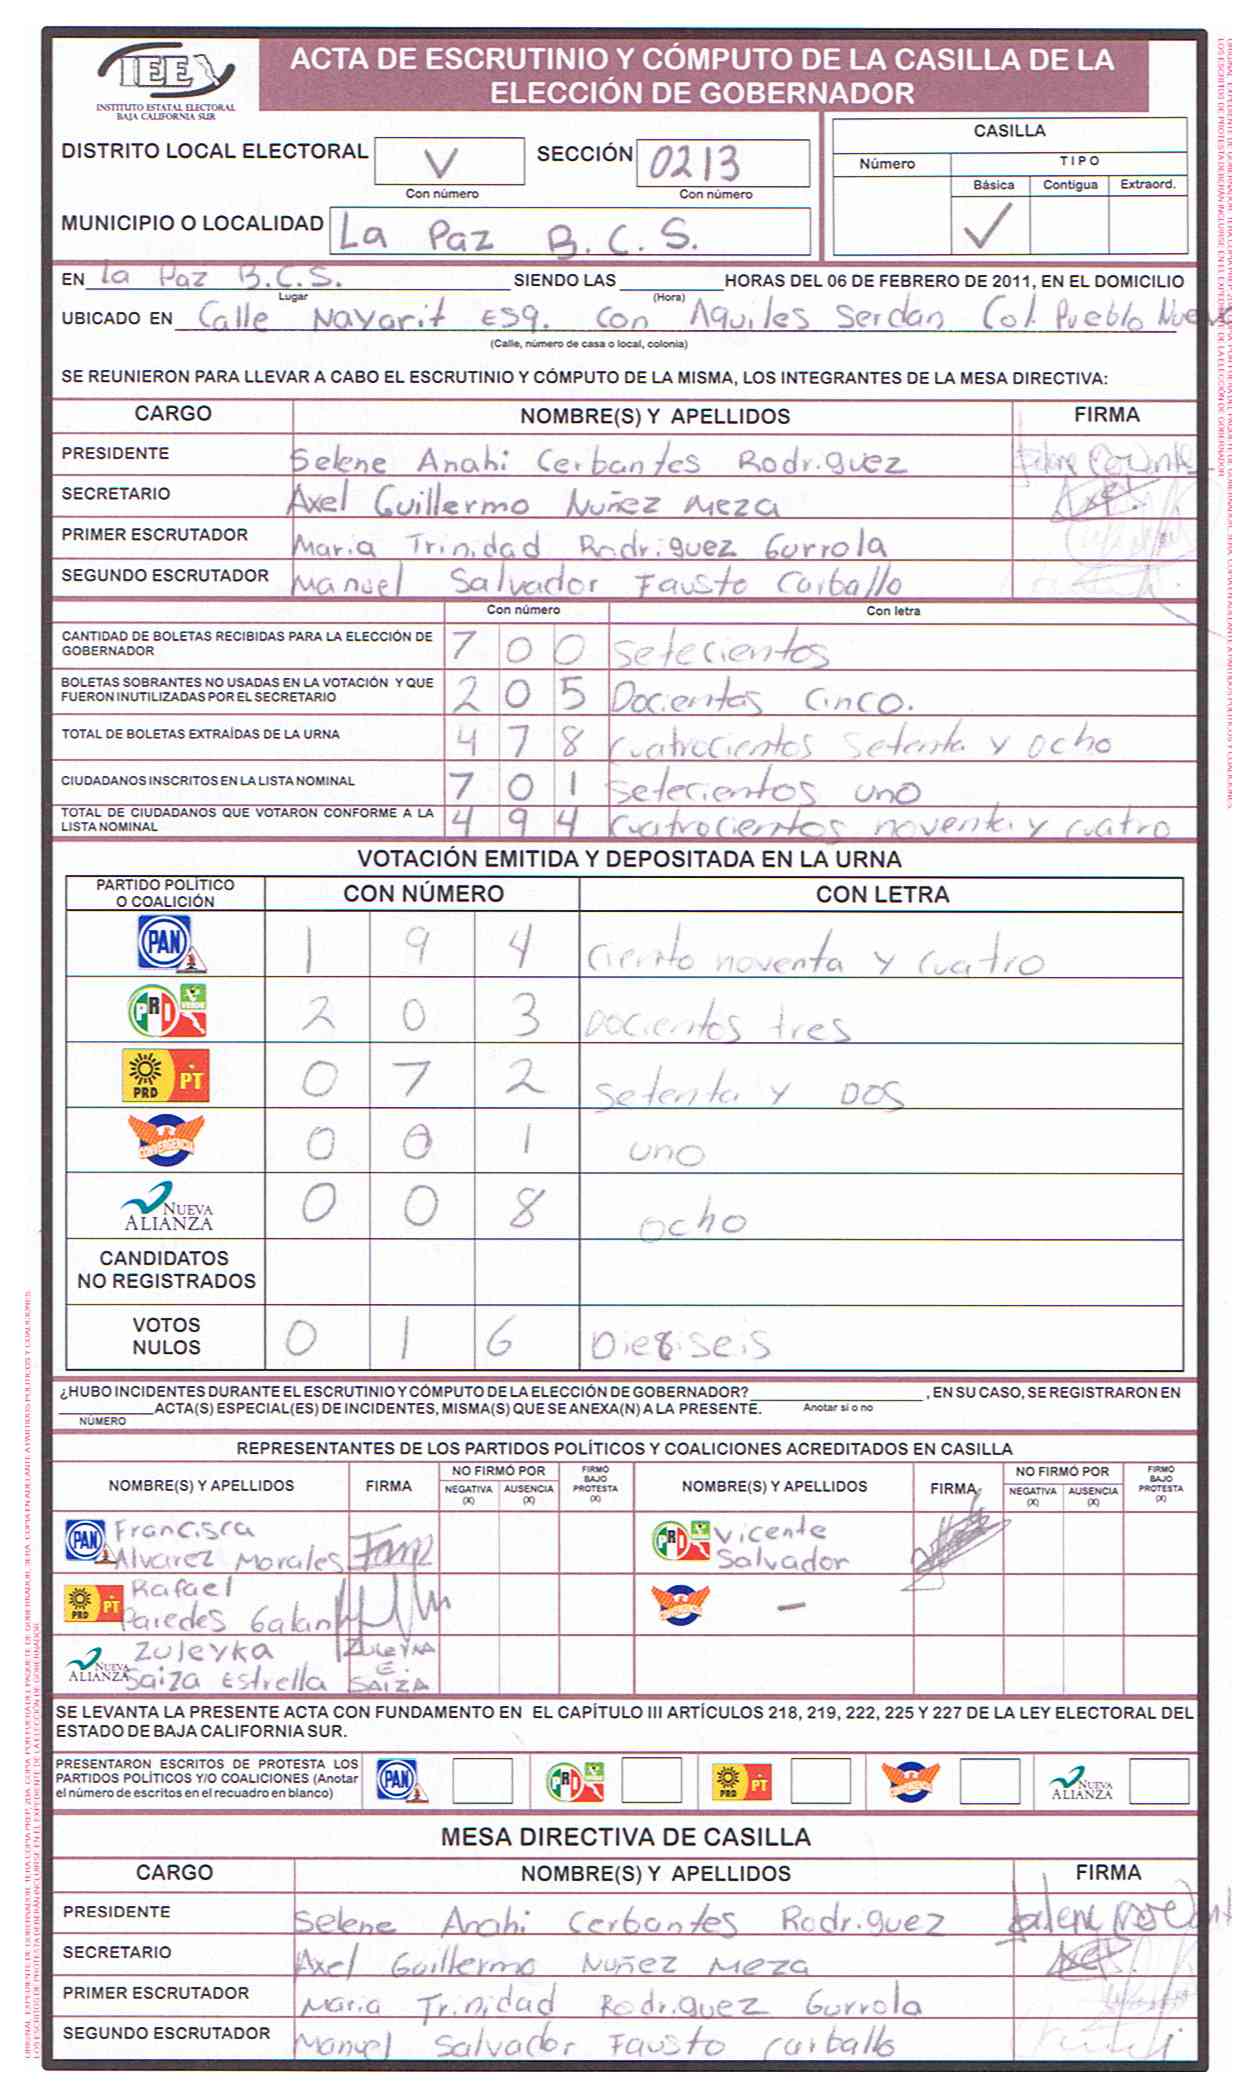 IEE
INSTITUTO ESTATAL ELECTORAL
BAJA CALIFORNIA SUR
ACTA DE ESCRUTINIO Y CÓMPUTO DE LA CASILLA DE LA
ELECCIÓN DE GOBERNADOR
DISTRITO LOCAL ELECTORAL V SECCIÓN 0213
Con número Con número
MUNICIPIO O LOCALIDAD La Paz B.C.S.
CASILLA
Número TIPO
Básica Contigua Extraord.
✓
EN La Paz B.C.S. SIENDO LAS HORAS DEL 06 DE FEBRERO DE 2011, EN EL DOMICILIO
Lugar (Hora)
UBICADO EN Calle Nayarit Esq. con Aquiles Serdan Col. Pueblo Nuevo
(Calle, número de casa o local, colonia)
SE REUNIERON PARA LLEVAR A CABO EL ESCRUTINIO Y CÓMPUTO DE LA MISMA, LOS INTEGRANTES DE LA MESA DIRECTIVA:
CARGO NOMBRE(S) Y APELLIDOS FIRMA
PRESIDENTE Selene Anahi Cerbantes Rodriguez
SECRETARIO Axel Guillermo Nuñez Meza Axel
PRIMER ESCRUTADOR Maria Trinidad Rodriguez Gurrola
SEGUNDO ESCRUTADOR Manuel Salvador Fausto Carballo
Con número Con letra
CANTIDAD DE BOLETAS RECIBIDAS PARA LA ELECCIÓN DE
GOBERNADOR 7 0 0 setecientos
BOLETAS SOBRANTES NO USADAS EN LA VOTACIÓN Y QUE
FUERON INUTILIZADAS POR EL SECRETARIO 2 0 5 Docientas Cinco.
TOTAL DE BOLETAS EXTRAÍDAS DE LA URNA 4 7 8 cuatrocientos setenta y ocho
CIUDADANOS INSCRITOS EN LA LISTA NOMINAL 7 0 1 setecientos uno
TOTAL DE CIUDADANOS QUE VOTARON CONFORME A LA
LISTA NOMINAL 4 9 4 cuatrocientos noventa y cuatro
VOTACIÓN EMITIDA Y DEPOSITADA EN LA URNA
PARTIDO POLÍTICO
O COALICIÓN CON NÚMERO CON LETRA
PAN 1 9 4 ciento noventa y cuatro
PRI VERDE 2 0 3 Docientos tres
PRD PT 0 7 2 setenta y DOS
CONVERGENCIA 0 0 1 uno
NUEVA
ALIANZA 0 0 8 ocho
CANDIDATOS
NO REGISTRADOS
VOTOS
NULOS 0 1 6 Dieciseis
¿HUBO INCIDENTES DURANTE EL ESCRUTINIO Y CÓMPUTO DE LA ELECCIÓN DE GOBERNADOR? , EN SU CASO, SE REGISTRARON EN
ACTA(S) ESPECIAL(ES) DE INCIDENTES, MISMA(S) QUE SE ANEXA(N) A LA PRESENTE. Anotar si o no
NÚMERO
REPRESENTANTES DE LOS PARTIDOS POLÍTICOS Y COALICIONES ACREDITADOS EN CASILLA
NOMBRE(S) Y APELLIDOS FIRMA NO FIRMÓ POR NEGATIVA (X) AUSENCIA (X) FIRMÓ BAJO PROTESTA (X) NOMBRE(S) Y APELLIDOS FIRMA NO FIRMÓ POR NEGATIVA (X) AUSENCIA (X) FIRMÓ BAJO PROTESTA (X)
PAN Francisca
Alvarez Morales
PRI VERDE Vicente
Salvador
PRD PT Rafael
Paredes Galan
CONVERGENCIA –
NUEVA ALIANZA Zuleyka
Saiza Estrella
ZULEYKA
E.
SAIZA
SE LEVANTA LA PRESENTE ACTA CON FUNDAMENTO EN EL CAPÍTULO III ARTÍCULOS 218, 219, 222, 225 Y 227 DE LA LEY ELECTORAL DEL
ESTADO DE BAJA CALIFORNIA SUR.
PRESENTARON ESCRITOS DE PROTESTA LOS
PARTIDOS POLÍTICOS Y/O COALICIONES (Anotar
el número de escritos en el recuadro en blanco)
PAN PRI VERDE PRD PT CONVERGENCIA NUEVA ALIANZA
MESA DIRECTIVA DE CASILLA
CARGO NOMBRE(S) Y APELLIDOS FIRMA
PRESIDENTE Selene Anahi Cerbantes Rodriguez
SECRETARIO Axel Guillermo Nuñez Meza Axel
PRIMER ESCRUTADOR Maria Trinidad Rodriguez Gurrola
SEGUNDO ESCRUTADOR Manuel Salvador Fausto Carballo